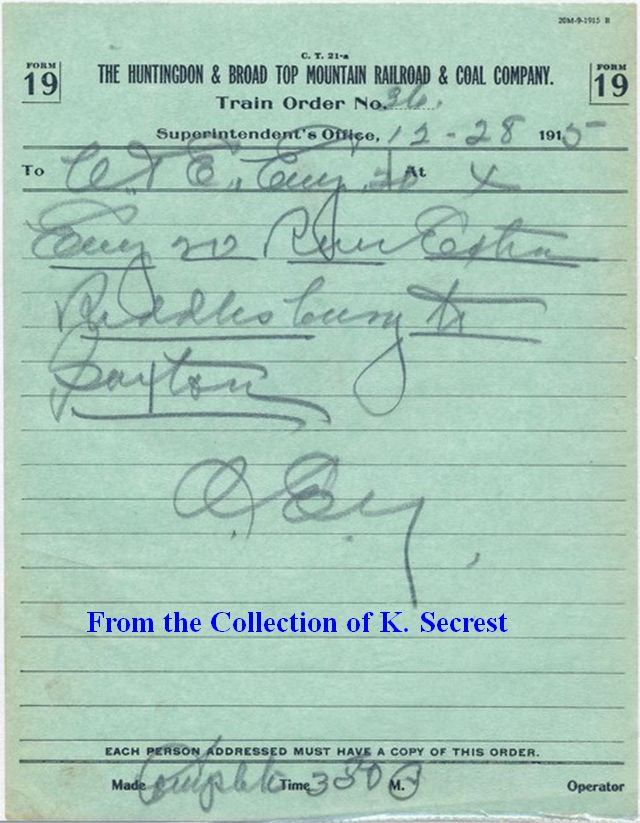 20M-9-1915 B
C. T. 21-a
FORM 19 THE HUNTINGDON & BROAD TOP MOUNTAIN RAILROAD & COAL COMPANY. FORM 19
Train Order No. 36.
Superintendent's Office, 12-28 1915
To C. & E., Eng. 20 At X
Eng 20 Run Extra
Riddlesburg to
Saxton
From the Collection of K. Secrest
EACH PERSON ADDRESSED MUST HAVE A COPY OF THIS ORDER.
Made Complete Time 350 M. Operator